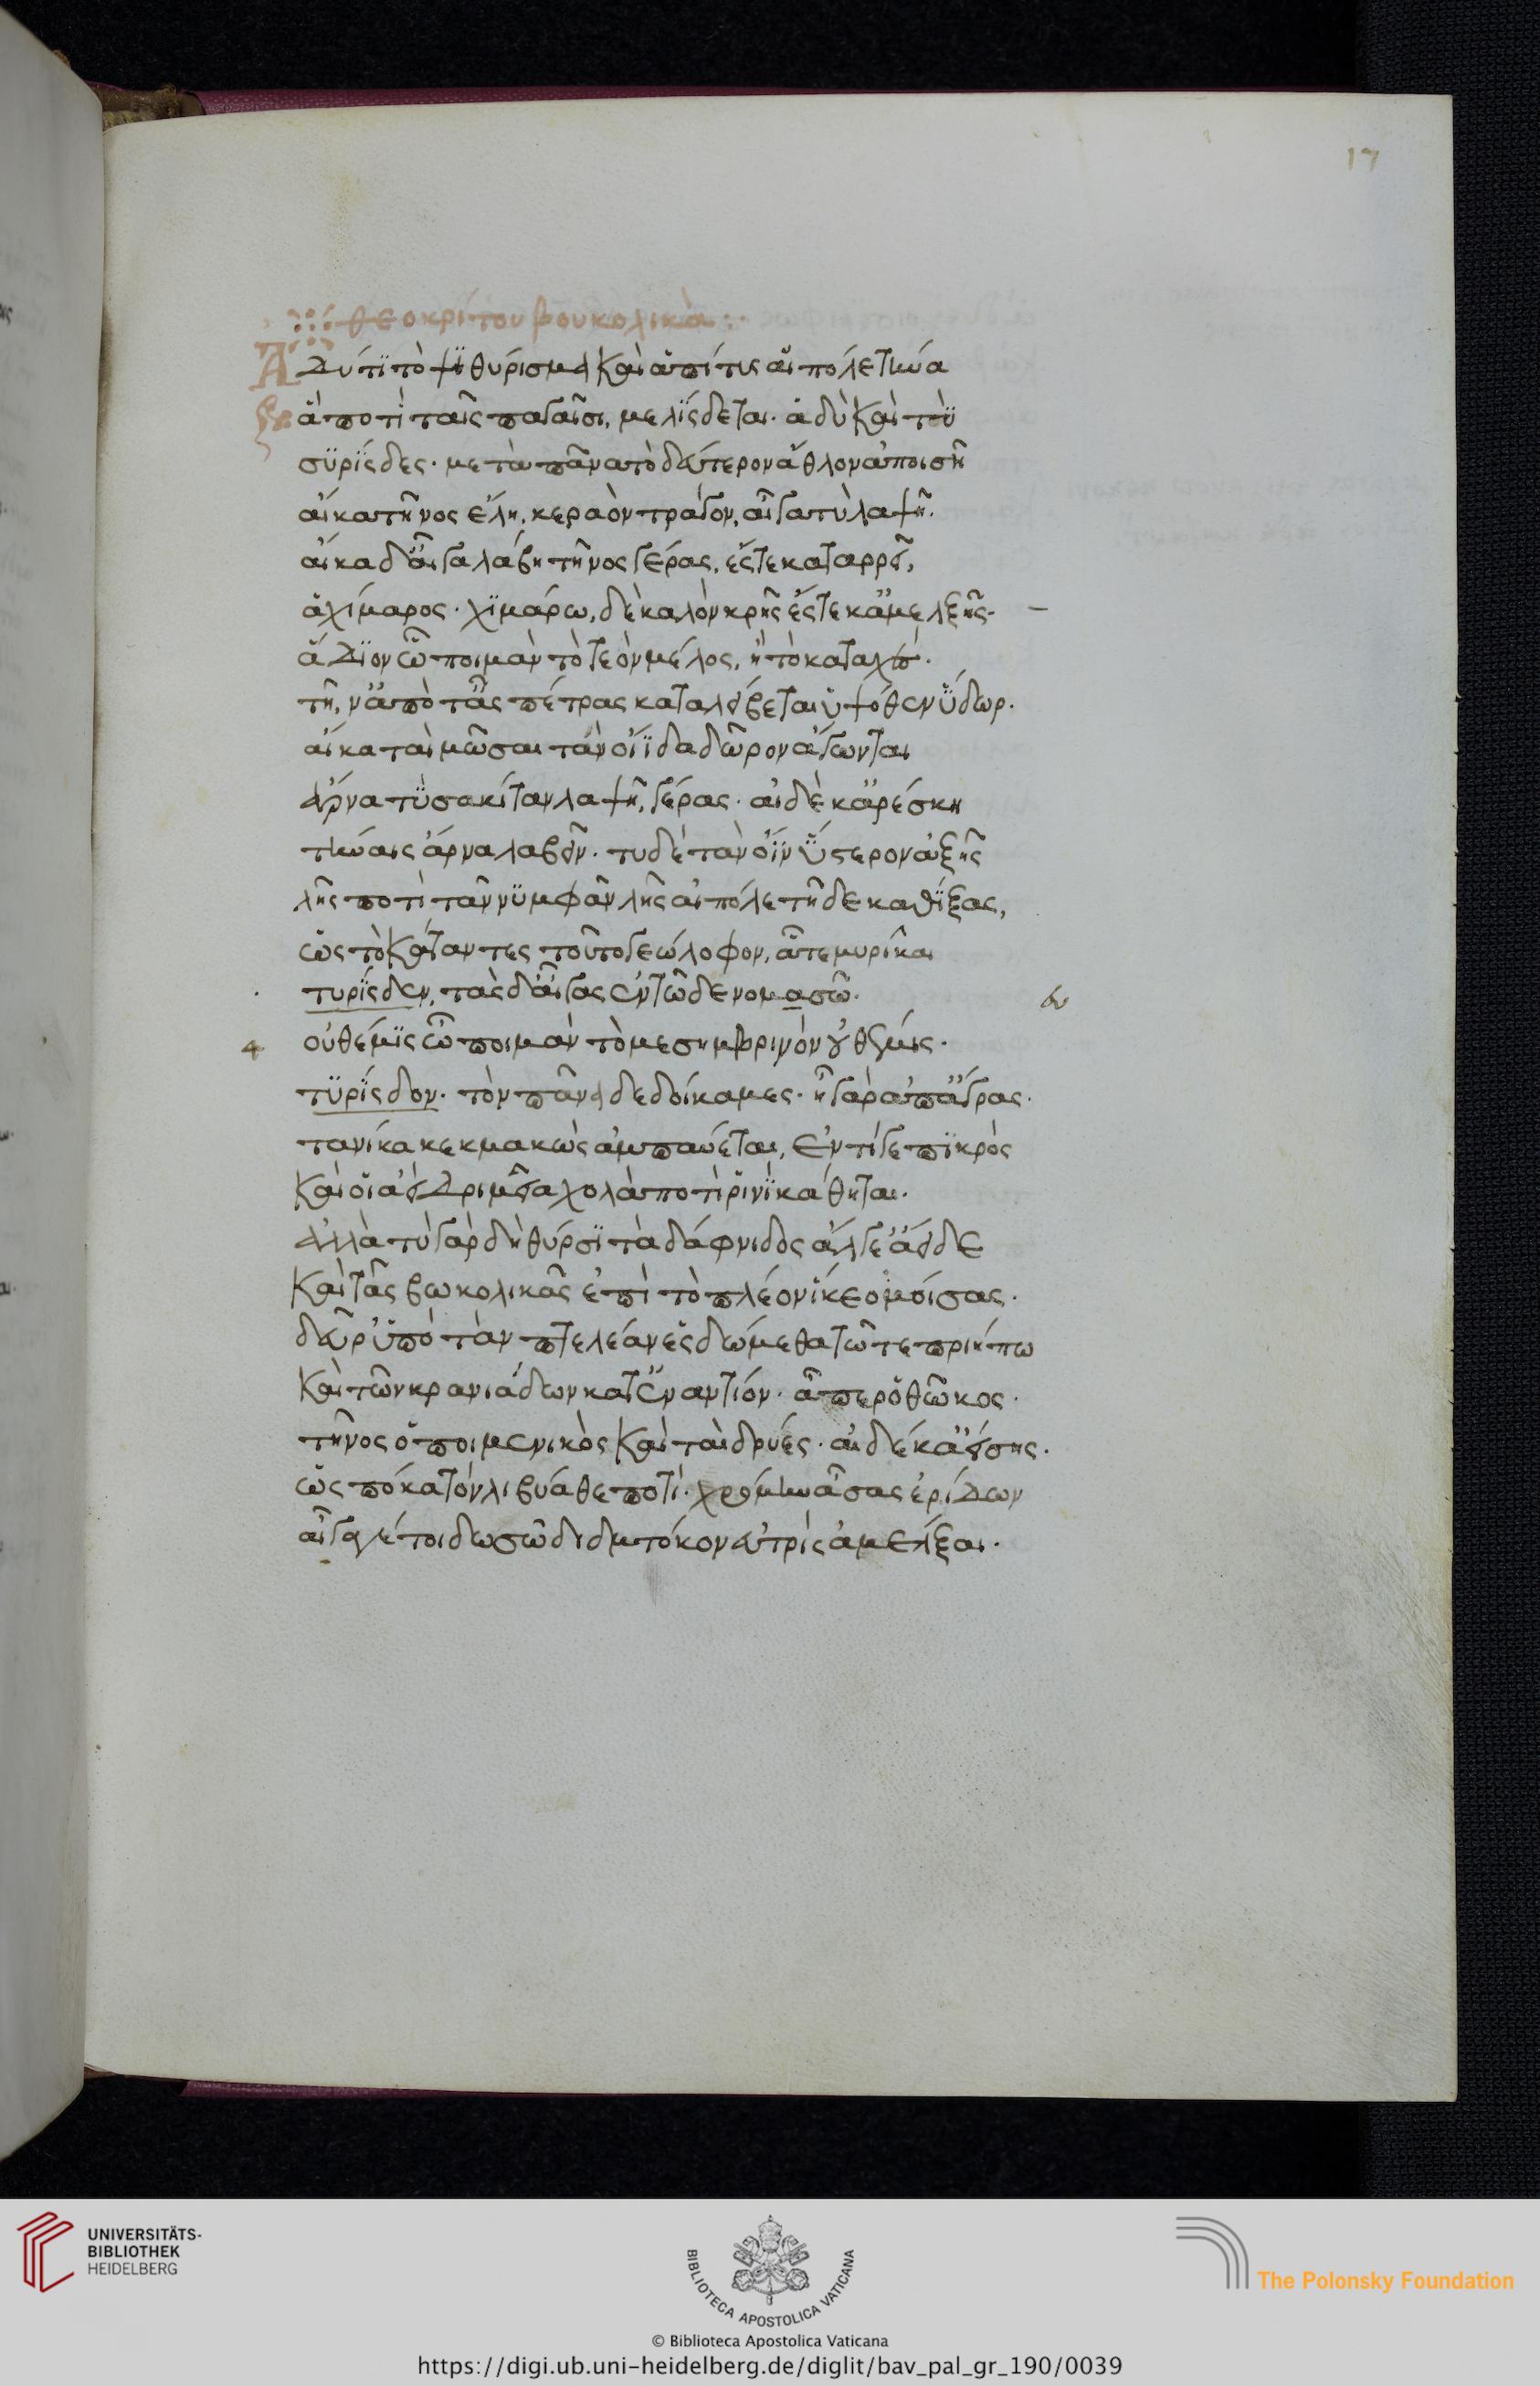 17
θεοκρίτου βουκολικὰ
Ἁδύ τι τὸ ψϊθύρισμα καὶ ἁ πίτυς αἰπόλε τήνα
ἁ ποτὶ ταῖς παγαῖσι, μελίσδεται. ἁδὺ καὶ τὺ
συρίσδες. μετὰ πᾶνα τὸ δεύτερον ἄθλον ἀποισῆ
αἴκα τῆνος ἕλη, κεραὸν τράγον, αἶγα τὺ λαψῆ.
αἴκα δ' αἶγα λάβη τῆνος γέρας, ἔστε καταρρεῖ,
ἁ χίμαρος. χϊμάρω, δὲ καλὸν κρῆς ἔστε κ' ἀμέλξης.
ἅδϊον ὦ ποιμὰν τὸ τεὸν μέλος, ἢ τὸ καταχὲς
τῆν' ἀπὸ τᾶς πέτρας καταλείβεται ὑψόθεν ὕδωρ.
αἴκα ταὶ μῶσαι τὰν οἴϊδα δῶρον ἄγωνται
ἄρνα τὺ σακίταν λαψῆ, γέρας. αἰ δὲ κ' ἀρέσκη
τήναις ἄρνα λαβεῖν. τὺ δὲ τὰν ὄϊν ὕστερον ἀξῆς
λῆς ποτὶ τᾶν νϋμφᾶν λῆς αἰπόλε τῆδε καθίξας,
ὡς τὸ κάταντες τοῦτο γεώλοφον, ἅτε μυρῖκαι
τυρίσδεν, τὰς δ' αἶγας ἐν τῶδε νομασῶ.
οὐ θέμϊς ὦ ποιμὰν τὸ μεσημβρινὸν οὐ θέμις.
τϋρίσδον. τὸν πᾶνα δεδοίκαμες. ἦ γὰρ ἀπ' ἄγρας.
τανίκα κεκμακὼς ἀμπαύεται, ἐντί γε πϊκρὸς
καὶ οἱ ἀεὶ δριμεῖα χολὰ ποτὶ ῥινὶ κάθηται.
ἀλλὰ τὺ γὰρ δὴ θύρσϊ τὰ δάφνιδος ἄλγε' ἄειδε
καὶ τᾶς βωκολικᾶς ἐπὶ τὸ πλέον ἵκεο μοίσας.
δεῦρ' ὑπὸ τὰν πτελέαν ἑσδώμεθα τῶ τε πριήπω
καὶ τῶν κρανιάδων κατεναντίον. ἇπερ ὁ θῶκος.
τῆνος ὁ ποιμενικὸς καὶ ταὶ δρύες. αἰ δέ κ' ἀείσης.
ὡς πόκα τὸν λιβύαθε ποτὶ χρόμιν ᾆσας ἐρίδων
αἶγα τέ τοι δωσῶ διδυμτόκον ἀτρὶς ἀμέλξαι.
UNIVERSITÄTS-
BIBLIOTHEK
HEIDELBERG
BIBLIOTECA APOSTOLICA VATICANA
The Polonsky Foundation
© Biblioteca Apostolica Vaticana
https://digi.ub.uni-heidelberg.de/diglit/bav_pal_gr_190/0039